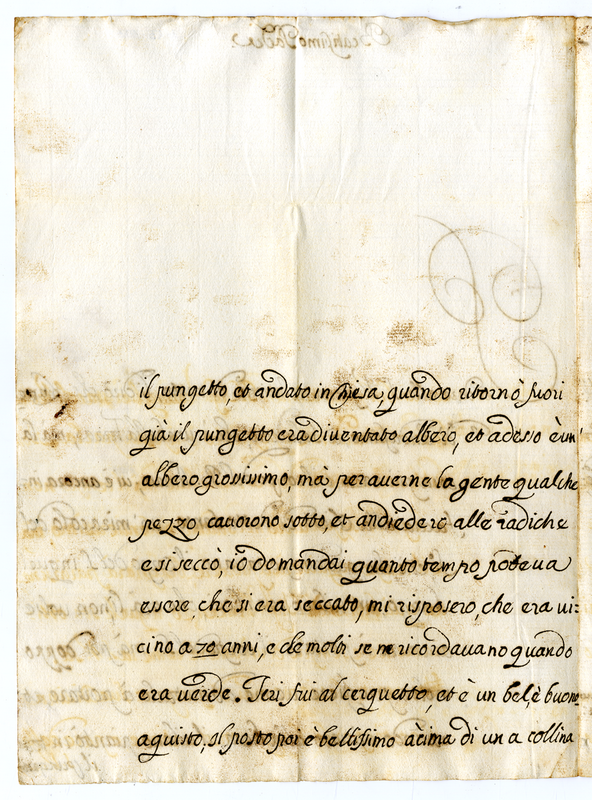 il pungetto, et andato in Chiesa, quando ritornò fuori
già il pungetto era diventato albero, et adesso è un'
albero grossissimo, mà per averne la gente qualche
pezzo cavorono sotto, et andiedero alle radiche
e si seccò, io domandai quanto tempo poteva
essere, che si era seccato, mi risposero, che era vi:
cino a 70 anni, e che molti se ne ricordavano quando
era verde. Ieri fui al cerquetto, et è un bel, è buono
aquisto, il posto poi è bellissimo à cima di una collina